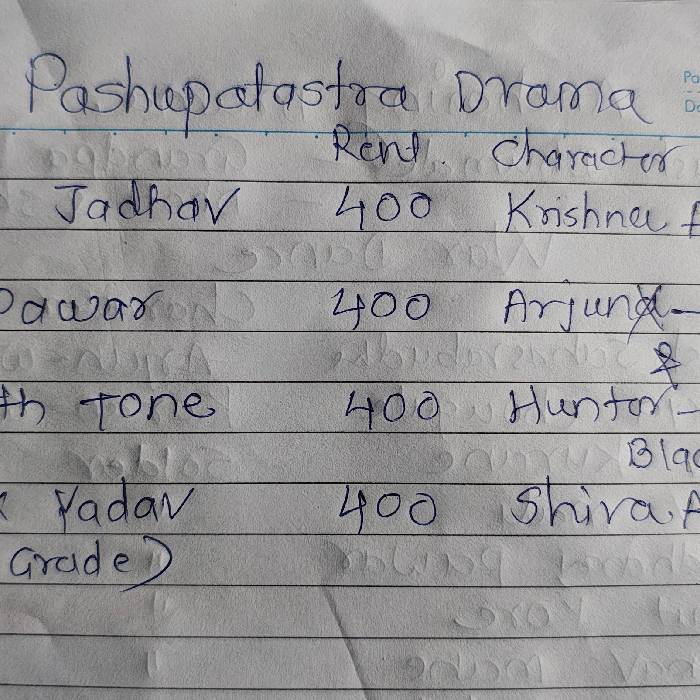 Pashupatastra Drama
Rent. Character
Jadhav 400 Krishna
Pawar 400 Arjun -
&
th Tone 400 Hunter -
Blac
Yadav 400 Shiva. A
Grade)